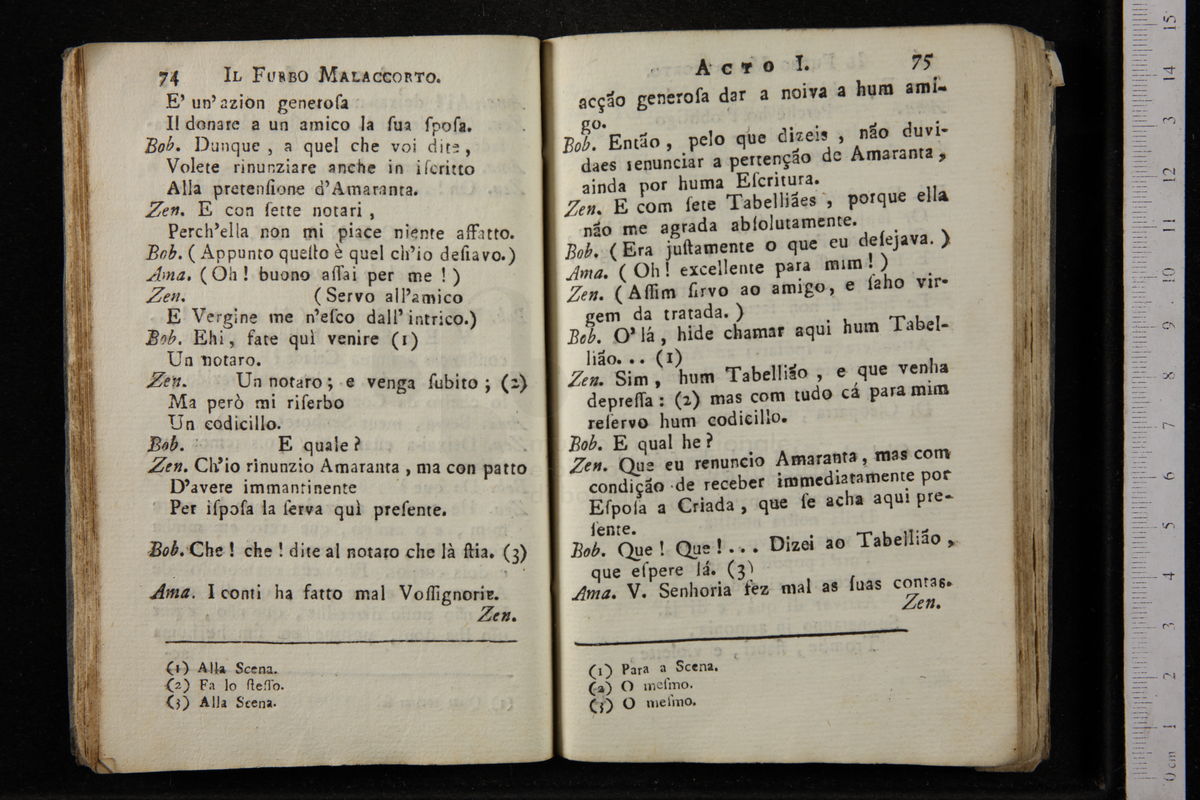 74 IL FURBO MALACCORTO.
E' un'azion generoſa
Il donare a un amico la ſua ſpoſa.
Bob. Dunque , a quel che voi dite ,
Volete rinunziare anche in iſcritto
Alla pretenſione d'Amaranta.
Zen. E con ſette notari ,
Perch'ella non mi piace niente affatto.
Bob. ( Appunto queſto è quel ch'io deſiavo. )
Ama. ( Oh ! buono aſſai per me ! )
Zen. ( Servo all'amico
E Vergine me n'eſco dall' intrico.)
Bob. Ehi , fate quì venire (1)
Un notaro.
Zen. Un notaro ; e venga ſubito ; (2)
Ma però mi riſerbo
Un codicillo.
Bob. E quale ?
Zen. Ch'io rinunzio Amaranta , ma con patto
D'avere immantinente
Per iſpoſa la ſerva quì preſente.
Bob. Che ! che ! dite al notaro che là ſtia. (3)
Ama. I conti ha fatto mal Voſſignorie.
Zen.
(1) Alla Scena.
(2) Fa lo ſteſſo.
(3) Alla Scena.
ACTO I. 75
acção generoſa dar a noiva a hum ami-
go.
Bob. Então , pelo que dizeis , não duvi-
daes renunciar a pertenção de Amaranta ,
ainda por huma Eſcritura.
Zen. E com ſete Tabelliães , porque ella
não me agrada abſolutamente.
Bob. ( Era juſtamente o que eu deſejava. )
Ama. ( Oh ! excellente para mim ! )
Zen. ( Aſſim ſirvo ao amigo, e ſaho vir-
gem da tratada. )
Bob. O' lá , hide chamar aqui hum Tabel-
lião. . . (1)
Zen. Sim , hum Tabellião , e que venha
depreſſa : (2) mas com tudo cá para mim
reſervo hum codicillo.
Bob. E qual he ?
Zen. Que eu renuncio Amaranta , mas com
condição de receber immediatamente por
Eſpoſa a Criada , que ſe acha aqui pre-
ſente.
Bob. Que ! Que ! . . . Dizei ao Tabellião ,
que eſpere lá. (3)
Ama. V. Senhoria fez mal as ſuas contas.
Zen.
(1) Para a Scena.
(2) O meſmo.
(3) O meſmo.